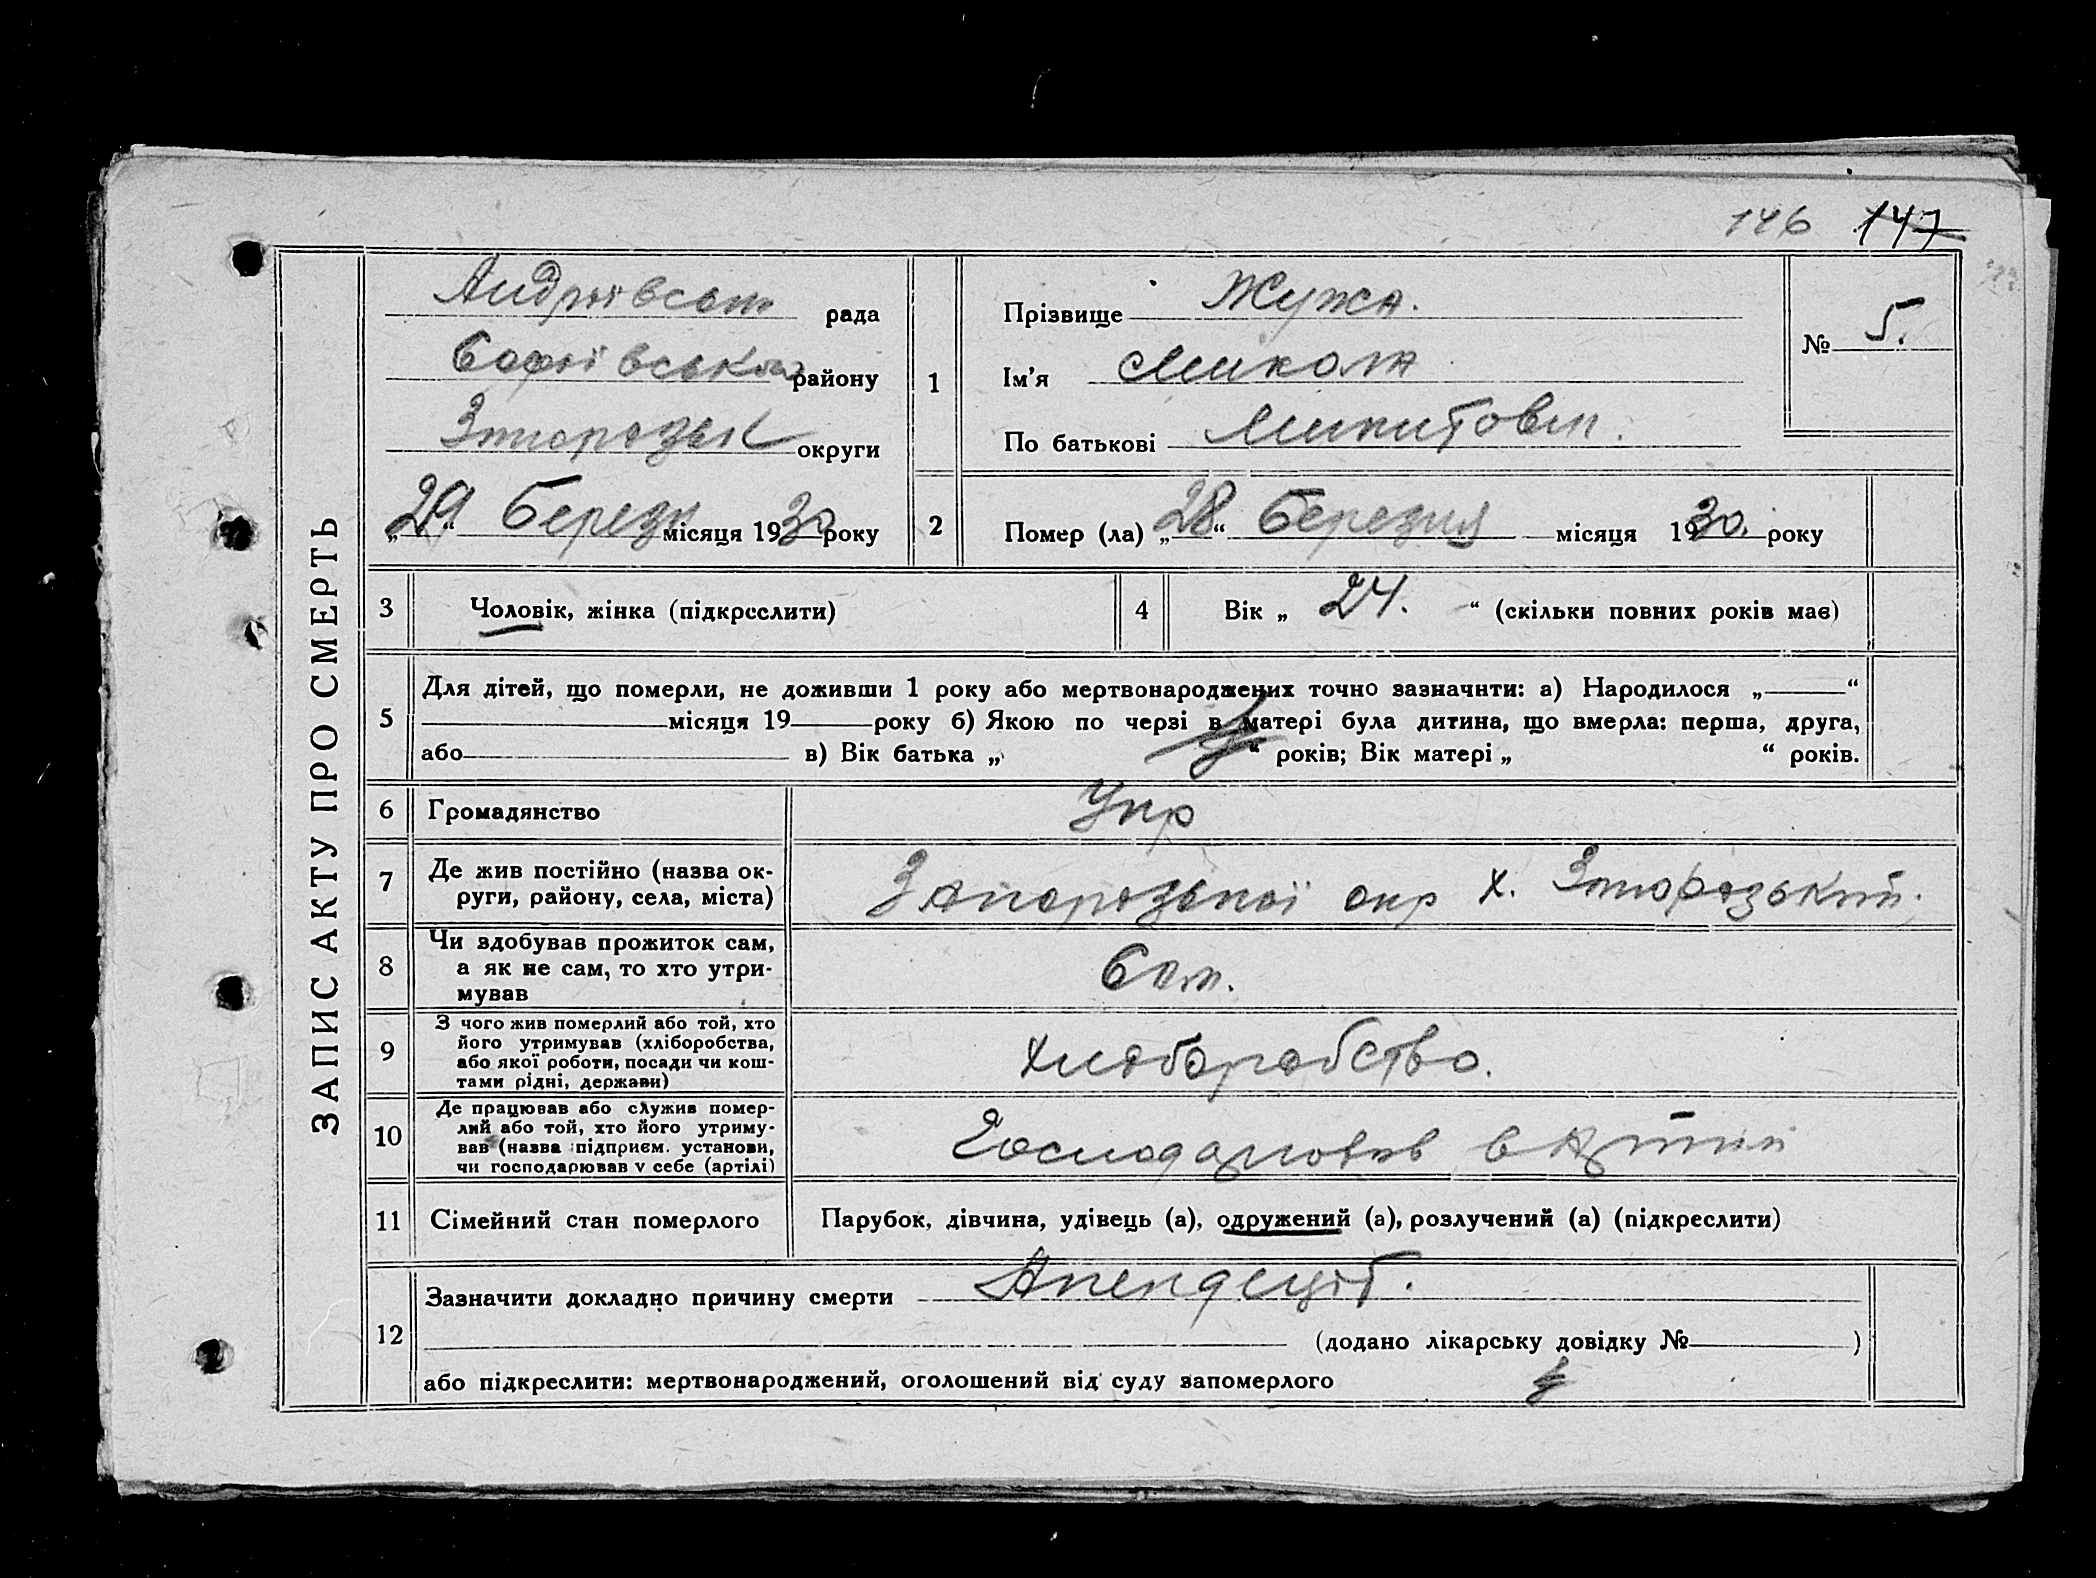 146 147
ЗАПИС АКТУ ПРО СМЕРТЬ
Андріївськ рада
Софіївськ району
округи
„29“ Березн місяця 1930 року
1
Прізвище Жужа.
Ім’я Микола
По батькові Микитович.
№ 5.
2
Помер (ла) „28“ Березня місяця 1930. року
3 Чоловік, жінка (підкреслити)
4 Вік „ 24. “ (скільки повних років має)
5
Для дітей, що померли, не доживши 1 року або мертвонароджених точно зазначити: а) Народилося „ “
місяця 19 року б) Якою по черзі в матері була дитина, що вмерла: перша, друга,
або в) Вік батька „ “ років; Вік матері „ “ років.
6 Громадянство Укр
7 Де жив постійно (назва ок-
руги, району, села, міста)
Запорозької окр х.
8 Чи здобував прожиток сам,
а як не сам, то хто утри-
мував
Сам.
9 З чого жив померлий або той, хто
його утримував (хліборобства,
або якої роботи, посади чи кош-
тами рідні, держави)
Хліборобство.
10 Де працював або служив помер-
лий або той, хто його утриму-
вав (назва підприєм. установи,
чи господарював у себе (артілі)
Господарював в
11 Сімейний стан померлого Парубок, дівчина, удівець (а), одружений (а), розлучений (а) (підкреслити)
12
Зазначити докладно причину смерти Апендецит.
(додано лікарську довідку № )
або підкреслити: мертвонароджений, оголошений від суду запомерлого